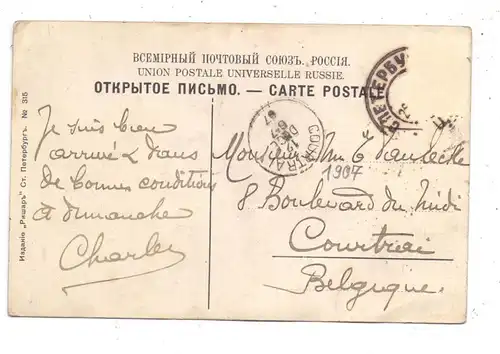 ВСЕМІРНЫЙ ПОЧТОВЫЙ СОЮЗЪ. РОССІЯ.
UNION POSTALE UNIVERSELLE RUSSIE.
ОТКРЫТОЕ ПИСЬМО. — CARTE POSTALE
С.ПЕТЕРБУ
COURTRA
12
07
Je suis bien
arrivé dans
de bonnes conditions
à dimanche
Charles
Monsieur
1907
8 Boulevard du Midi
Courtrai
Belgique
Изданіе „Ришаръ" Ст. Петербургъ. № 315